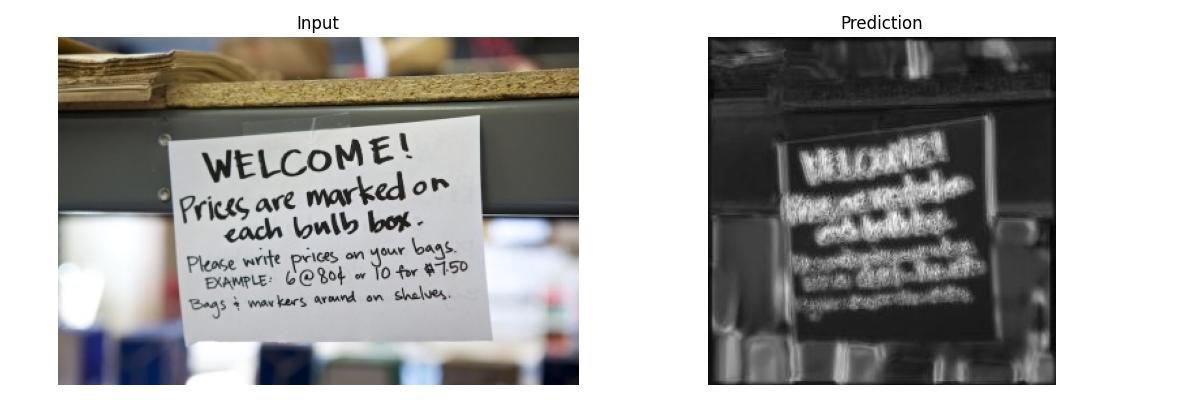 Input
Prediction
WELCOME!
Prices are marked on
each bulb box.
Please write prices on your bags.
EXAMPLE: 6@80¢ or 10 for $7.50
Bags & markers around on shelves.